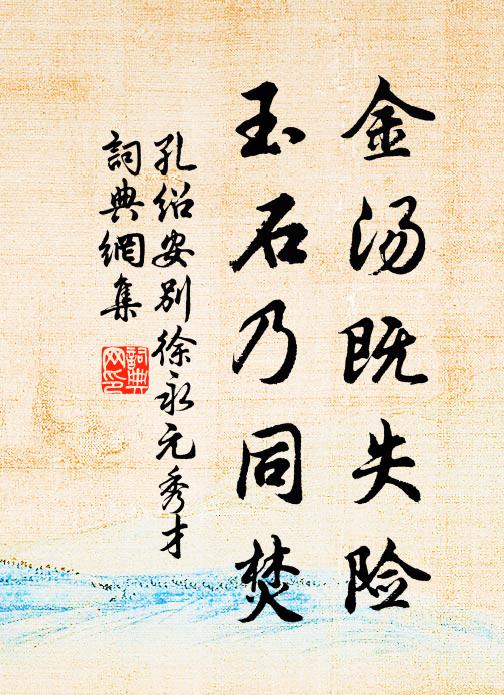 金汤既失险
玉石乃同焚
孔绍安别徐永元秀才
詞典網集
詞典
网印